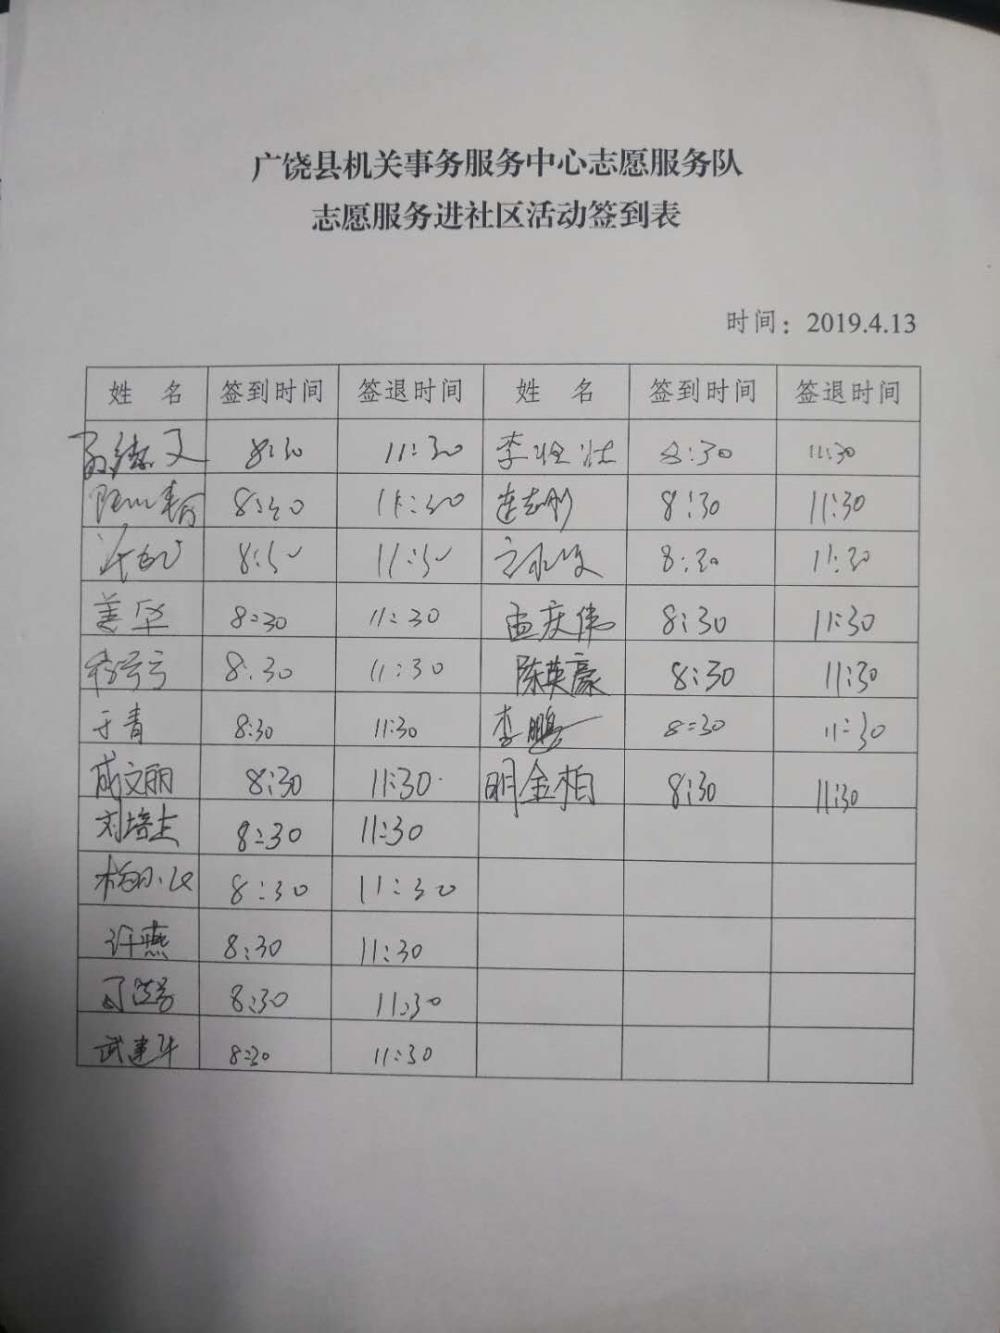 广饶县机关事务服务中心志愿服务队
志愿服务进社区活动签到表
时间：2019.4.13
姓 名 签到时间 签退时间 姓 名 签到时间 签退时间
8:30 11:30 李 8:30 11:30
8:30 11:30 8:30 11:30
8:30 11:30 8:30 11:30
姜华 8:30 11:30 孟庆伟 8:30 11:30
8:30 11:30 陈英豪 8:30 11:30
于青 8:30 11:30 李鹏 8:30 11:30
成文丽 8:30 11:30 明金柏 8:30 11:30
刘培 8:30 11:30
8:30 11:30
许燕 8:30 11:30
8:30 11:30
武建华 8:30 11:30